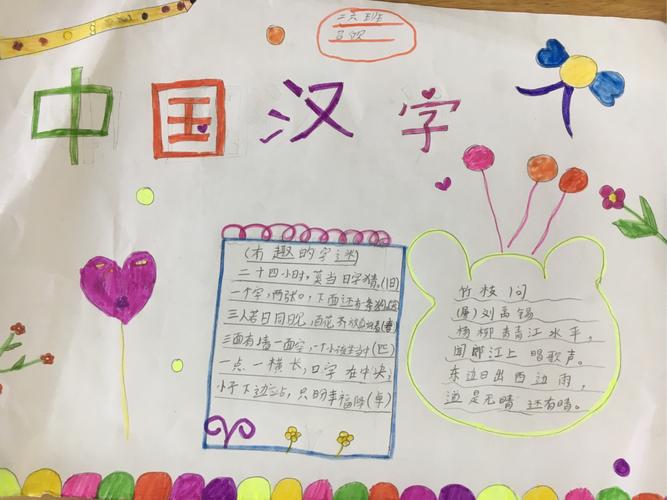 二六班
中国汉字
(有趣的字谜)
二十四小时,莫当日字猜.(旧)
一个字,两张口,下面还有条狗
三人若日同见,百花齐放
三面有墙一面空,一个小孩坐当中(匹)
一点一横长,口字在中央,
小子下边站,只盼幸福降(享)
竹枝问
(唐)刘禹锡
杨柳青青江水平,
闻郎江上唱歌声。
东边日出西边雨,
道是无晴还有晴。